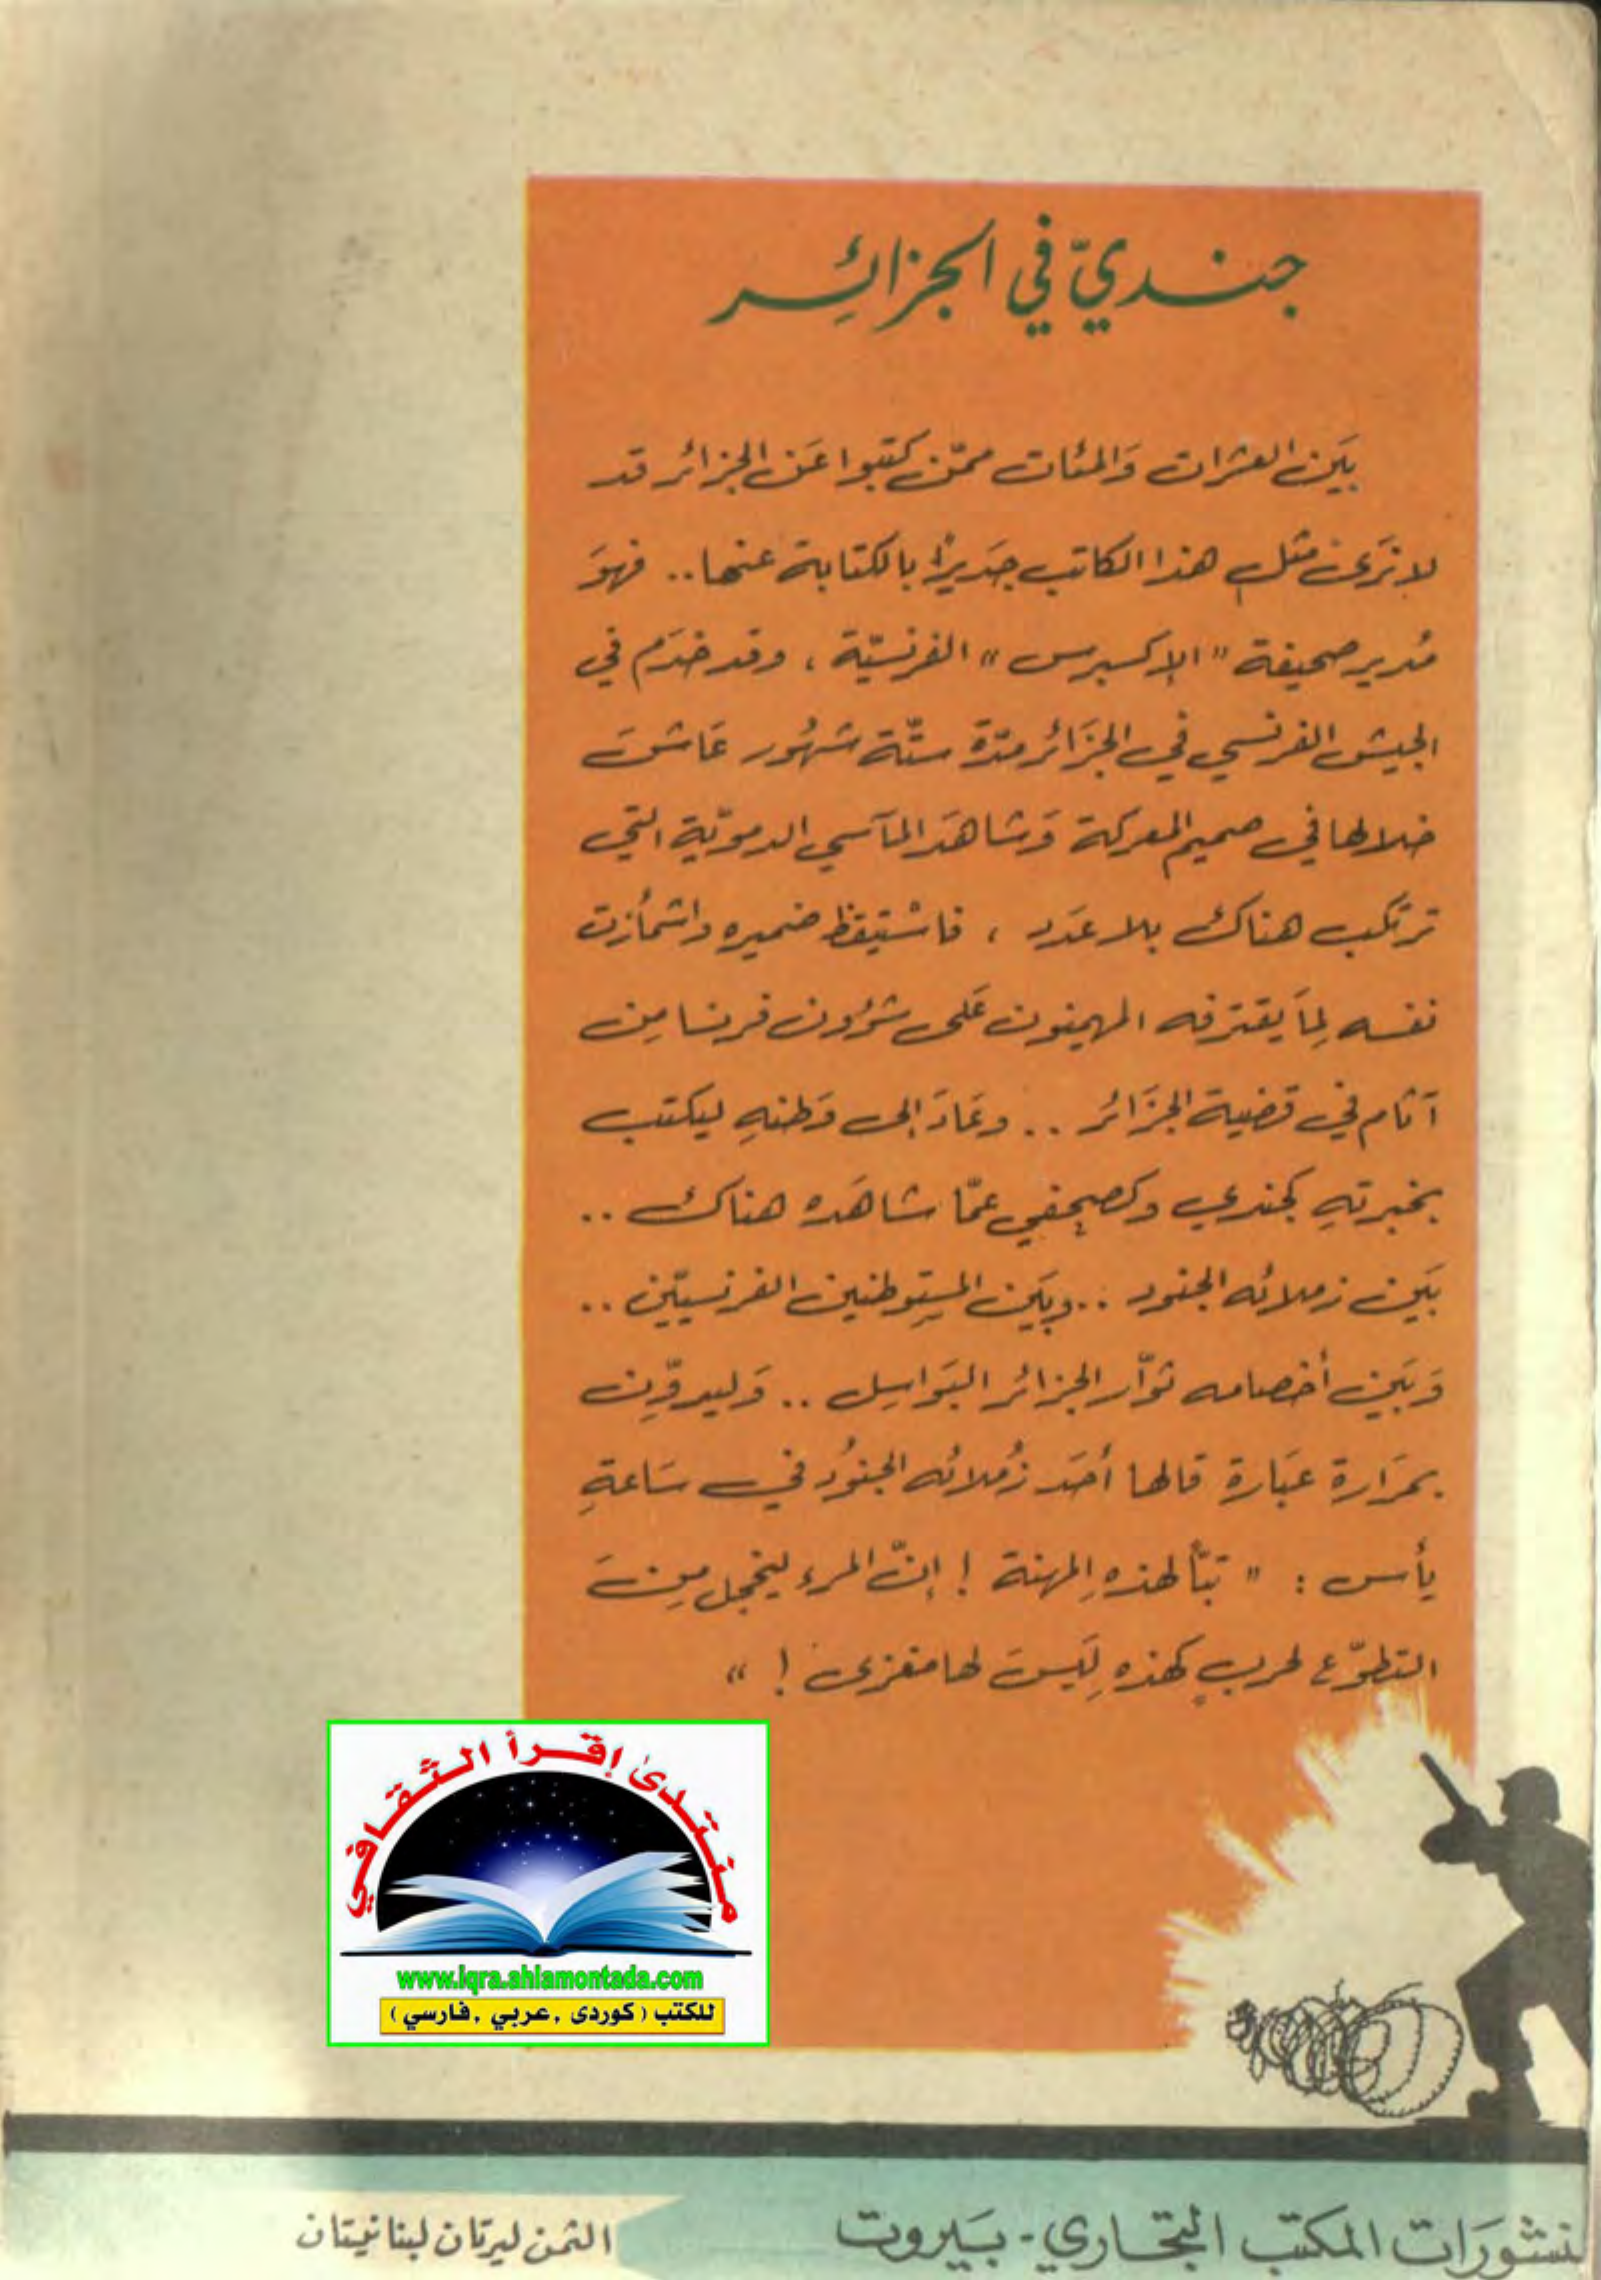 جنديّ في الجزائر
بَين العشرات وَالمئات ممّن كتبوا عَن الجزائر قد
لا نرَى مثل هذا الكاتب جَديرًا بالكتابة عنها .. فهوَ
مُدير صحيفة "الإكسبرس" الفرنسيّة ، وقد خدَم في
الجيش الفرنسي في الجزَائر مدّة ستّة شهُور عَاشَ
خلالها في صميم المعركة وَشاهَد المآسي الدمويّة التي
ترتكب هناك بلا عدَد ، فاسْتيقظ ضميره واشمأزت
نفسه لِمَا يقترفه المهيمنون عَلى شؤون فرنسا مِن
آثام في قضية الجزَائر .. وعَادَ إلى وَطنهِ ليكتب
بخبرتهِ كجندي وكصحفي عمّا شاهَده هناك ..
بَين زملائه الجنود .. وبَين المستوطنين الفرنسيّين ..
وَبَين أخصامه ثوّار الجزائر البَواسِل .. وَليدوّن
بمرَارة عبَارة قالها أحَد زُملائه الجنُود في سَاعةِ
يأس : " تبًّا لهذهِ المهنة ! إنّ المرء ليخجل مِنَ
التطوّع لحربٍ كهذهِ لَيسَ لها مغزى ! "
منتدى إقرأ الثقافي
www.iqra.ahlamontada.com
للكتب ( كوردی , عربي , فارسي )
منشورَات المكتب التجَاري - بَيروت
الثمن ليرتان لبنانيتان